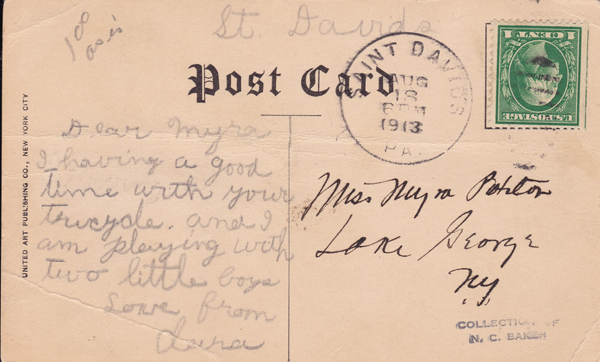 St. Davids
as is
Post Card
SAINT DAVIDS
AUG
18
6 PM
1913
PA.
U.S. POSTAGE
1 CENT 1
Dear Myra
I having a good
time with your
tricycle. and I
am playing with
two little boys
Love from
Miss Myra
Lake George
NY
UNITED ART PUBLISHING CO., NEW YORK CITY
COLLECTION OF
N. C. BAKER